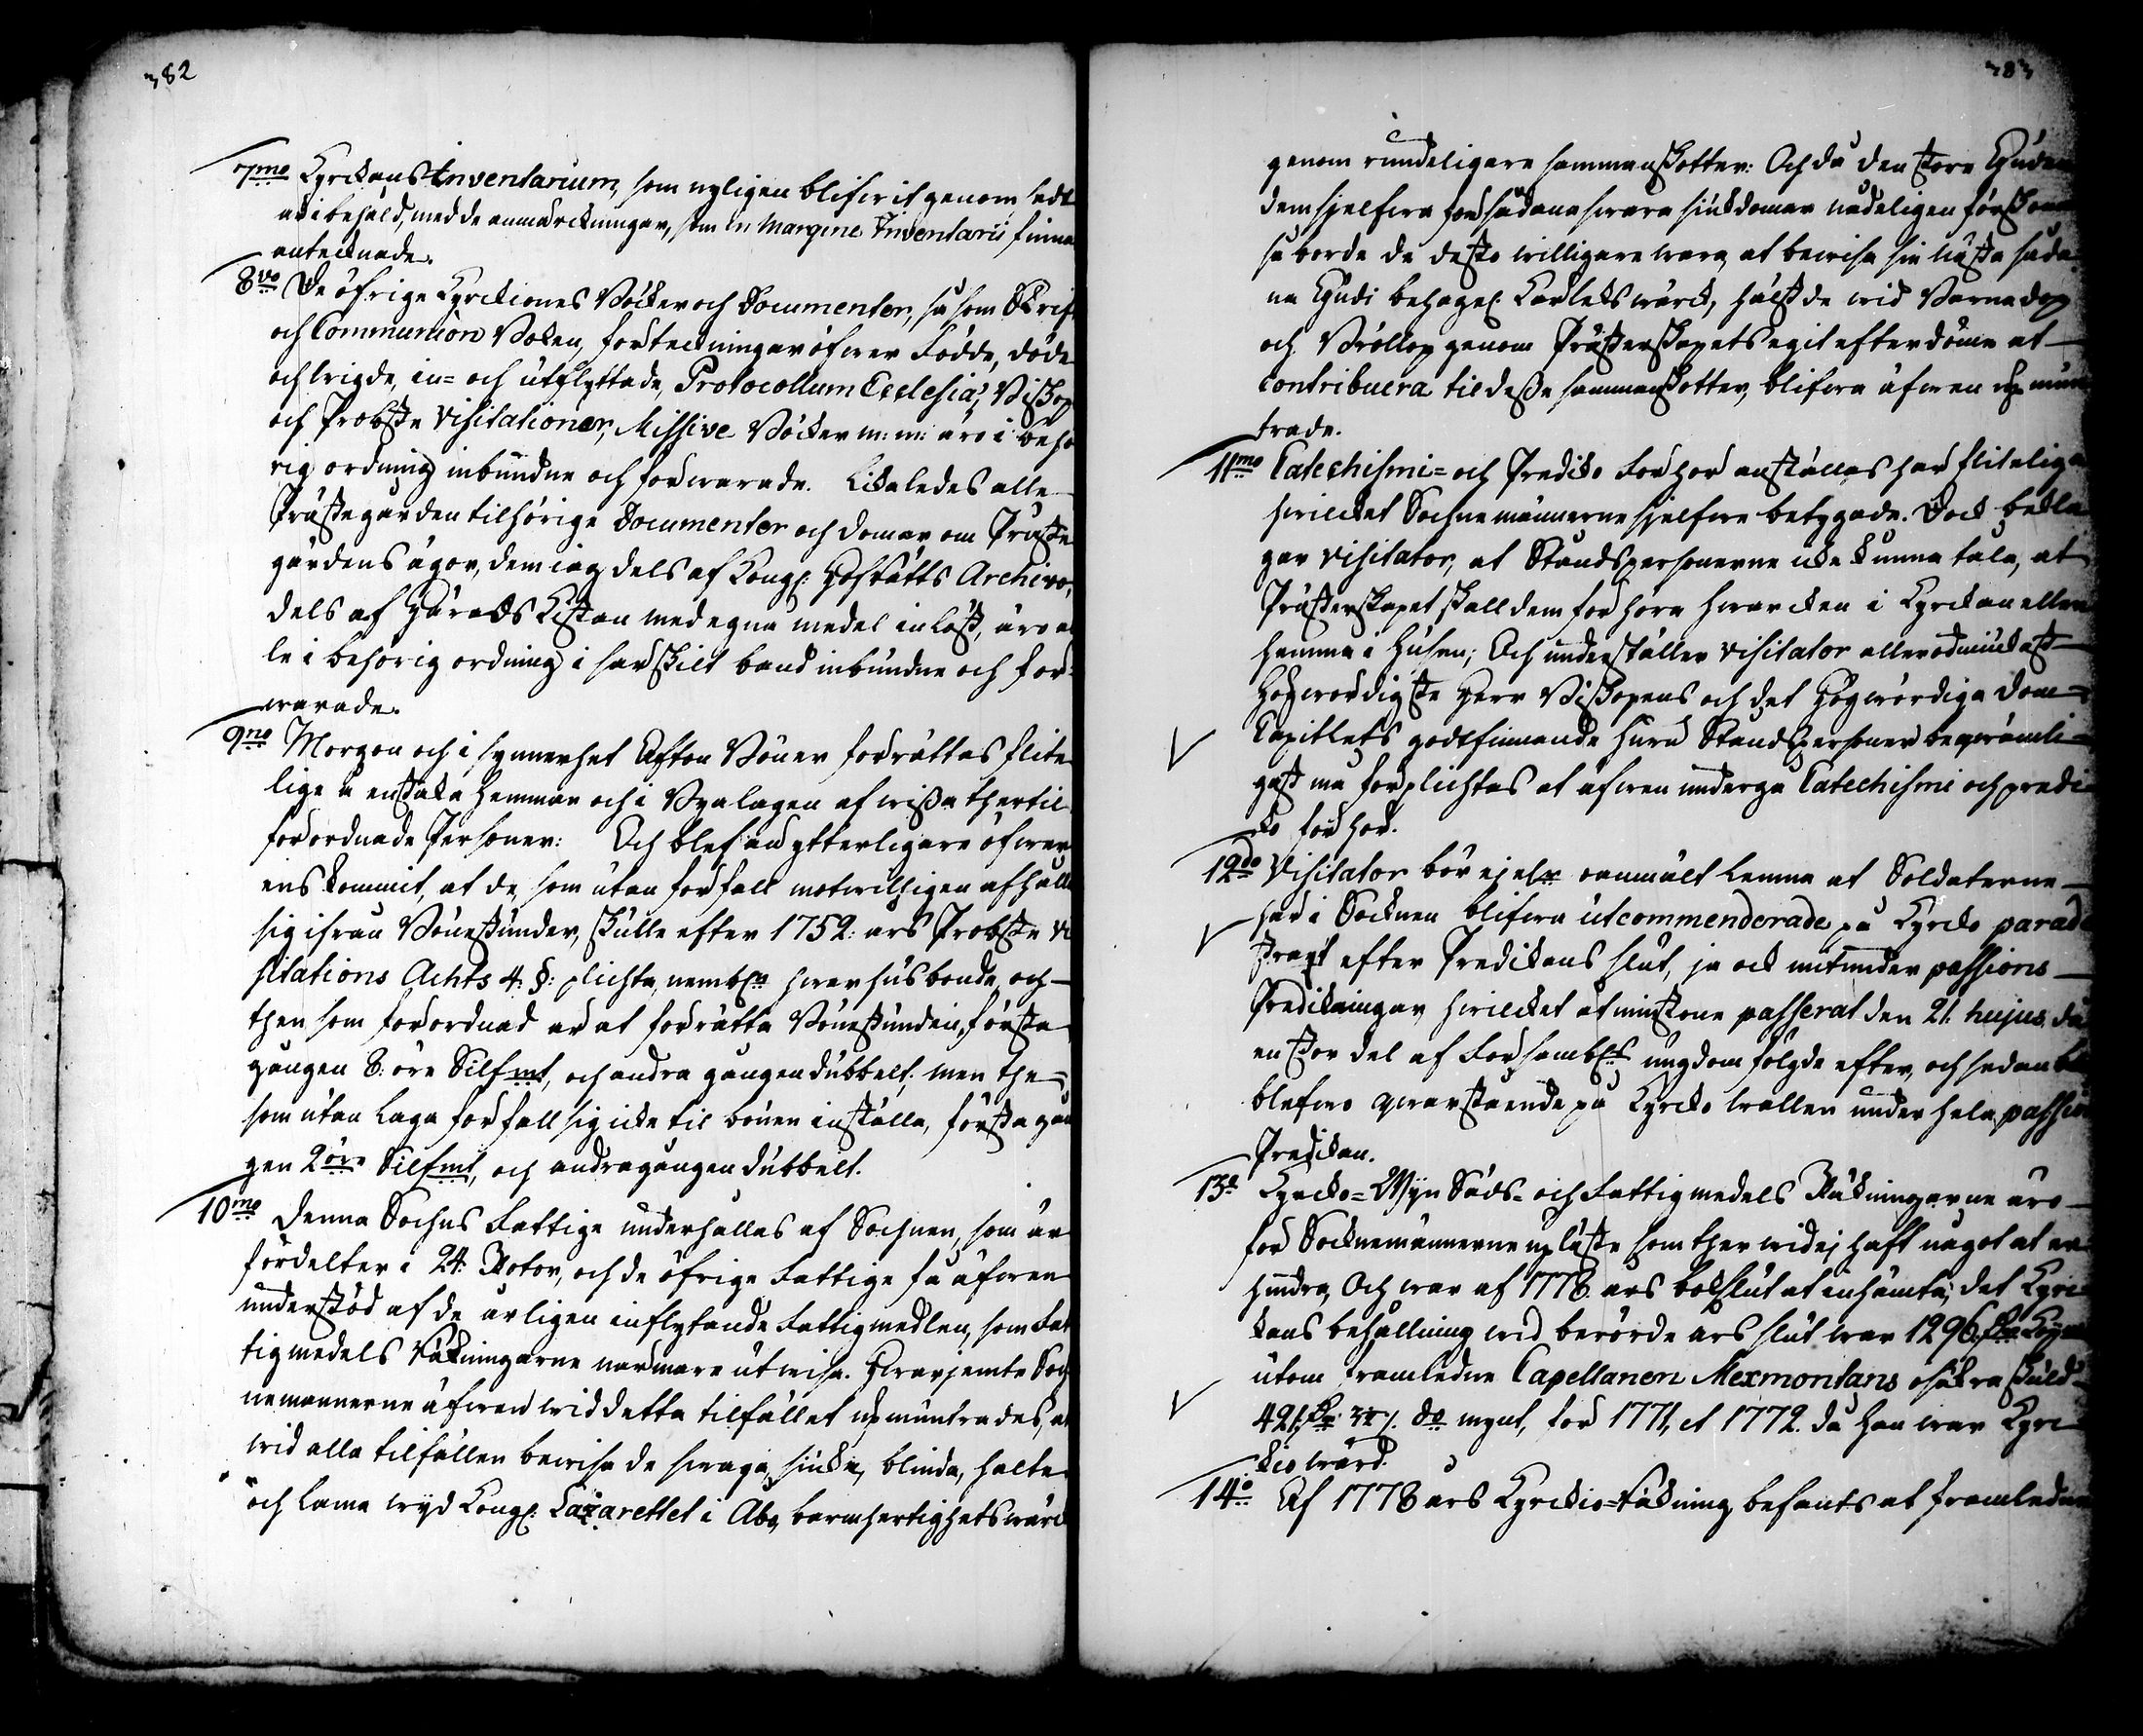 382
7mo Kyrckans Inventarium, som nyligen blifwit genom sedt
är i behåld, med de anmärckningar, som in Margine Inventarii finnas
antecknade.
8vo De öfrige Kyrckiones Böcker och Documenter, så som Skrift
och Communion Boken, förteckningar öfwer Födde, döde
och wigde, in= och utflyttade, Protocollum Ecclesiæ, Biskops
och Probste Visitationer, Missive Böcker m: m: äro i behö
rig ordning inbundne och förwarade. Likaledes alle
Prästegården tilhörige Documenter och domar om Präste
gårdens ägor, dem iag dels af Kongl: Hofrätts Archivo,
dels af Härads Kistan med egna medel inlöst, äro al
le i behörig ordning i särskilt band inbundne och för-
warade.
9no Morgon och i synnerhet Afton Böner förrättas flite
lige å enstaka hemman och i Byalagen af wissa thertil
förordnade Personer: Och blef nu ytterligare öfwer
ens kommit, at de, som utan förfall motwilligen afhålla
sig ifrån Bönestunder, skulle efter 1752: års Probste Vi
sitations Achts 4: §: plichta, nembl: hwar husbonde, och
then som förordnad är at förrätta Bönestunden, första
gången 8: öre Silf:mt, och andra gången dubbelt: men the
som utan Laga förfall sig icke til bönen inställa, första gån
gen 2 öre Silf:mt, och andra gången dubbelt.
10mo Denna Sochns Fattige underhållas af Sochnen, som är
fördelter i 24: Rotor, och de öfrige Fattige få äfwen
understöd af de årligen inflytande Fattigmedlen, som Fat
tigmedels Räkningarne närmare utwisa. Hwarjemte Soch
nemännerne äfwen wid detta tilfället upmuntrades, at
wid alla tilfällen bewisa de swaga, siuka, blinda, halta
och lama wid Kongl: Lazarettet i Åbo, barmhertighetswärck
383
genom rundeligare sammanskotter: Och då den store Guden
dem sjelfwa för sådana swåra siukdomar nådeligen förskonar
så borde de desto willigare wara, at bewisa sin nästa såda
na Gudi behagel: Kärlekswärck, hälst de wid Barnadop
och Bröllop genom Prästerskapets egit efterdöme at
contribuera til desse sammanskotter, blifwa äfwen upmun
trade.
11mo Catechismi= och Prediko Förhör anställas här fliteliga
hwilcket Sochnemännerne sjelfwe betygade. Dock bekla
gar visitator, at Ståndspersonerne icke kunna tåla, at
Prästerskapet skall dem förhöra hwarcken i Kyrckan eller
hemma i husen; Och underställer visitator allerödmiukast
Högwördigste Herr Biskopens och det Högwördiga Dom=
Capitlets godtfinnande huru Ståndspersoner beqwämli-
gast må förplichtas at äfwen undergå Catechismi och predi-
ko förhör.
12do Visitator bör ej eller oanmält lemna at Soldaterne
här i Socknen blifwa utcommenderade på Kyrcko parade
strax efter Predikans slut, ja ock mitunder passions
Predikningar, hwilcket åtminstone passerat den 21. hujus, då
en stor del af Församb:s ungdom fölgde efter, och sedan
blefwo qwarstående på Kyrcko wallen under hela passions
Predikan.
13o Kyrcko= Wijn Säds= och Fattigmedels Räkningarne äro
för Socknemännerne upläste som ther wid ej haft något at er
hindra, Och war af 1778 års bokslut at inhämta, det Kyrc
kans behållning wid berörde års slut war 1296
utom framledne Capellanen Mexmontans osäkra skuld
421 do mynt, för 1771, et 1772. då han war Kyrc
kiowärd.
14o Af 1778 års Kyrckio=räkning befants at framledne